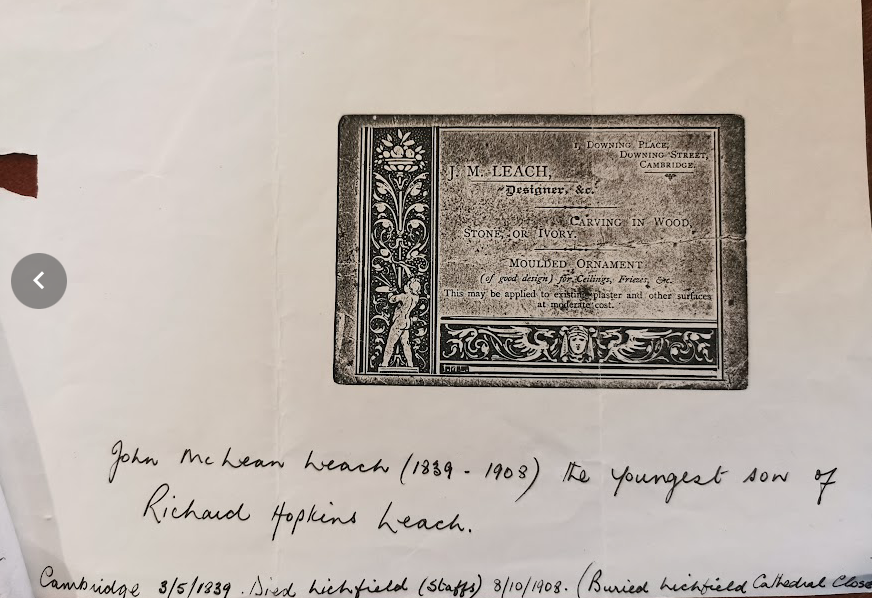 1, DOWNING PLACE,
DOWNING STREET,
CAMBRIDGE.
J. M. LEACH,
Designer, &c.
CARVING IN WOOD,
STONE, OR IVORY.
MOULDED ORNAMENT
(of good design) for Ceilings, Friezes, &c.
This may be applied to existing plaster and other surfaces
at moderate cost.
John McLean Leach (1839 - 1908) the youngest son of
Richard Hopkins Leach.
Cambridge 3/5/1839. Died Lichfield (Staffs) 8/10/1908. (Buried Lichfield Cathedral Close